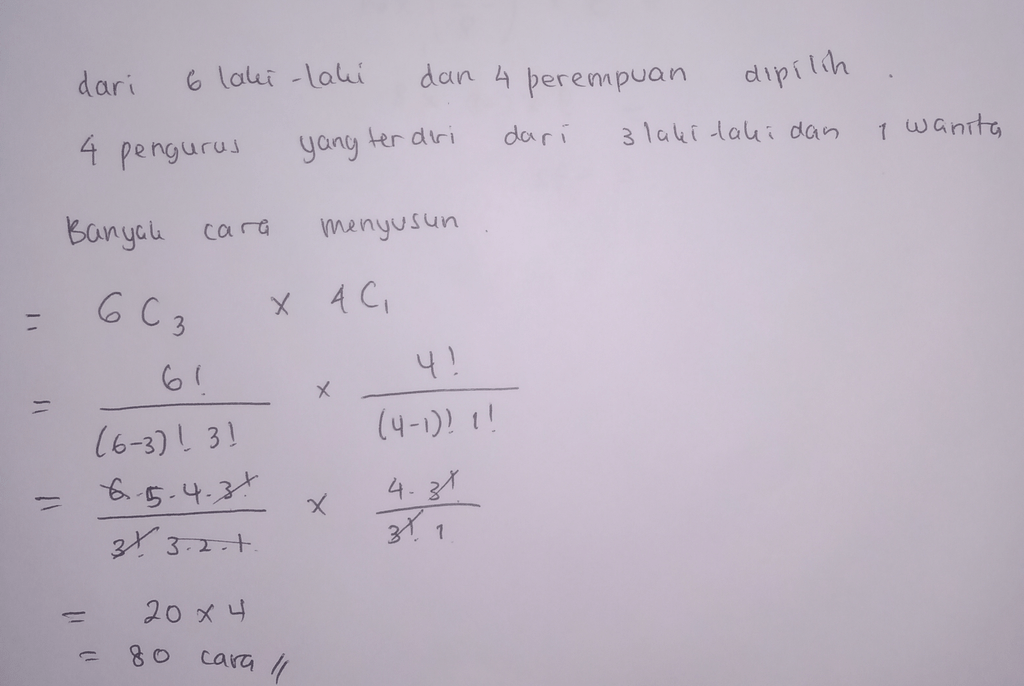 dari 6 laki-laki dan 4 perempuan dipilih.
4 pengurus yang terdiri dari 3 laki-laki dan 1 wanita
Banyak cara menyusun.
= 6C₃ × 4C₁
= 6! / (6-3)! 3! × 4! / (4-1)! 1!
= 6.5.4.3! / 3! 3.2.1. × 4.3! / 3! 1
= 20 × 4
= 80 cara //